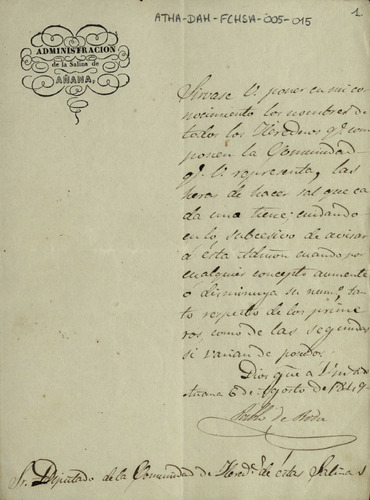 ATHA-DAH-FCHSA-005-015
1
ADMINISTRACION
de la Salina de
AÑANA.
Sirvase V. poner en mi co-
nocimiento los nombres de
todos los Herederos q.e com
ponen la Comunidad
q.e V. representa, las
heras de hacer sal que ca
da uno tiene: cuidando
en lo subcesivo de avisar
á ésta Admon cuando por
cualquier concepto aumente
o disminuya su num.o, tan
to respecto de los prime
ros como de las segundas
si varian de
Dios gue a V. m.s a.s
Añana 6 de Agosto de 1849
Pablo de
Sr. Diputado de la Comunidad de Hered.s de éstas Salinas